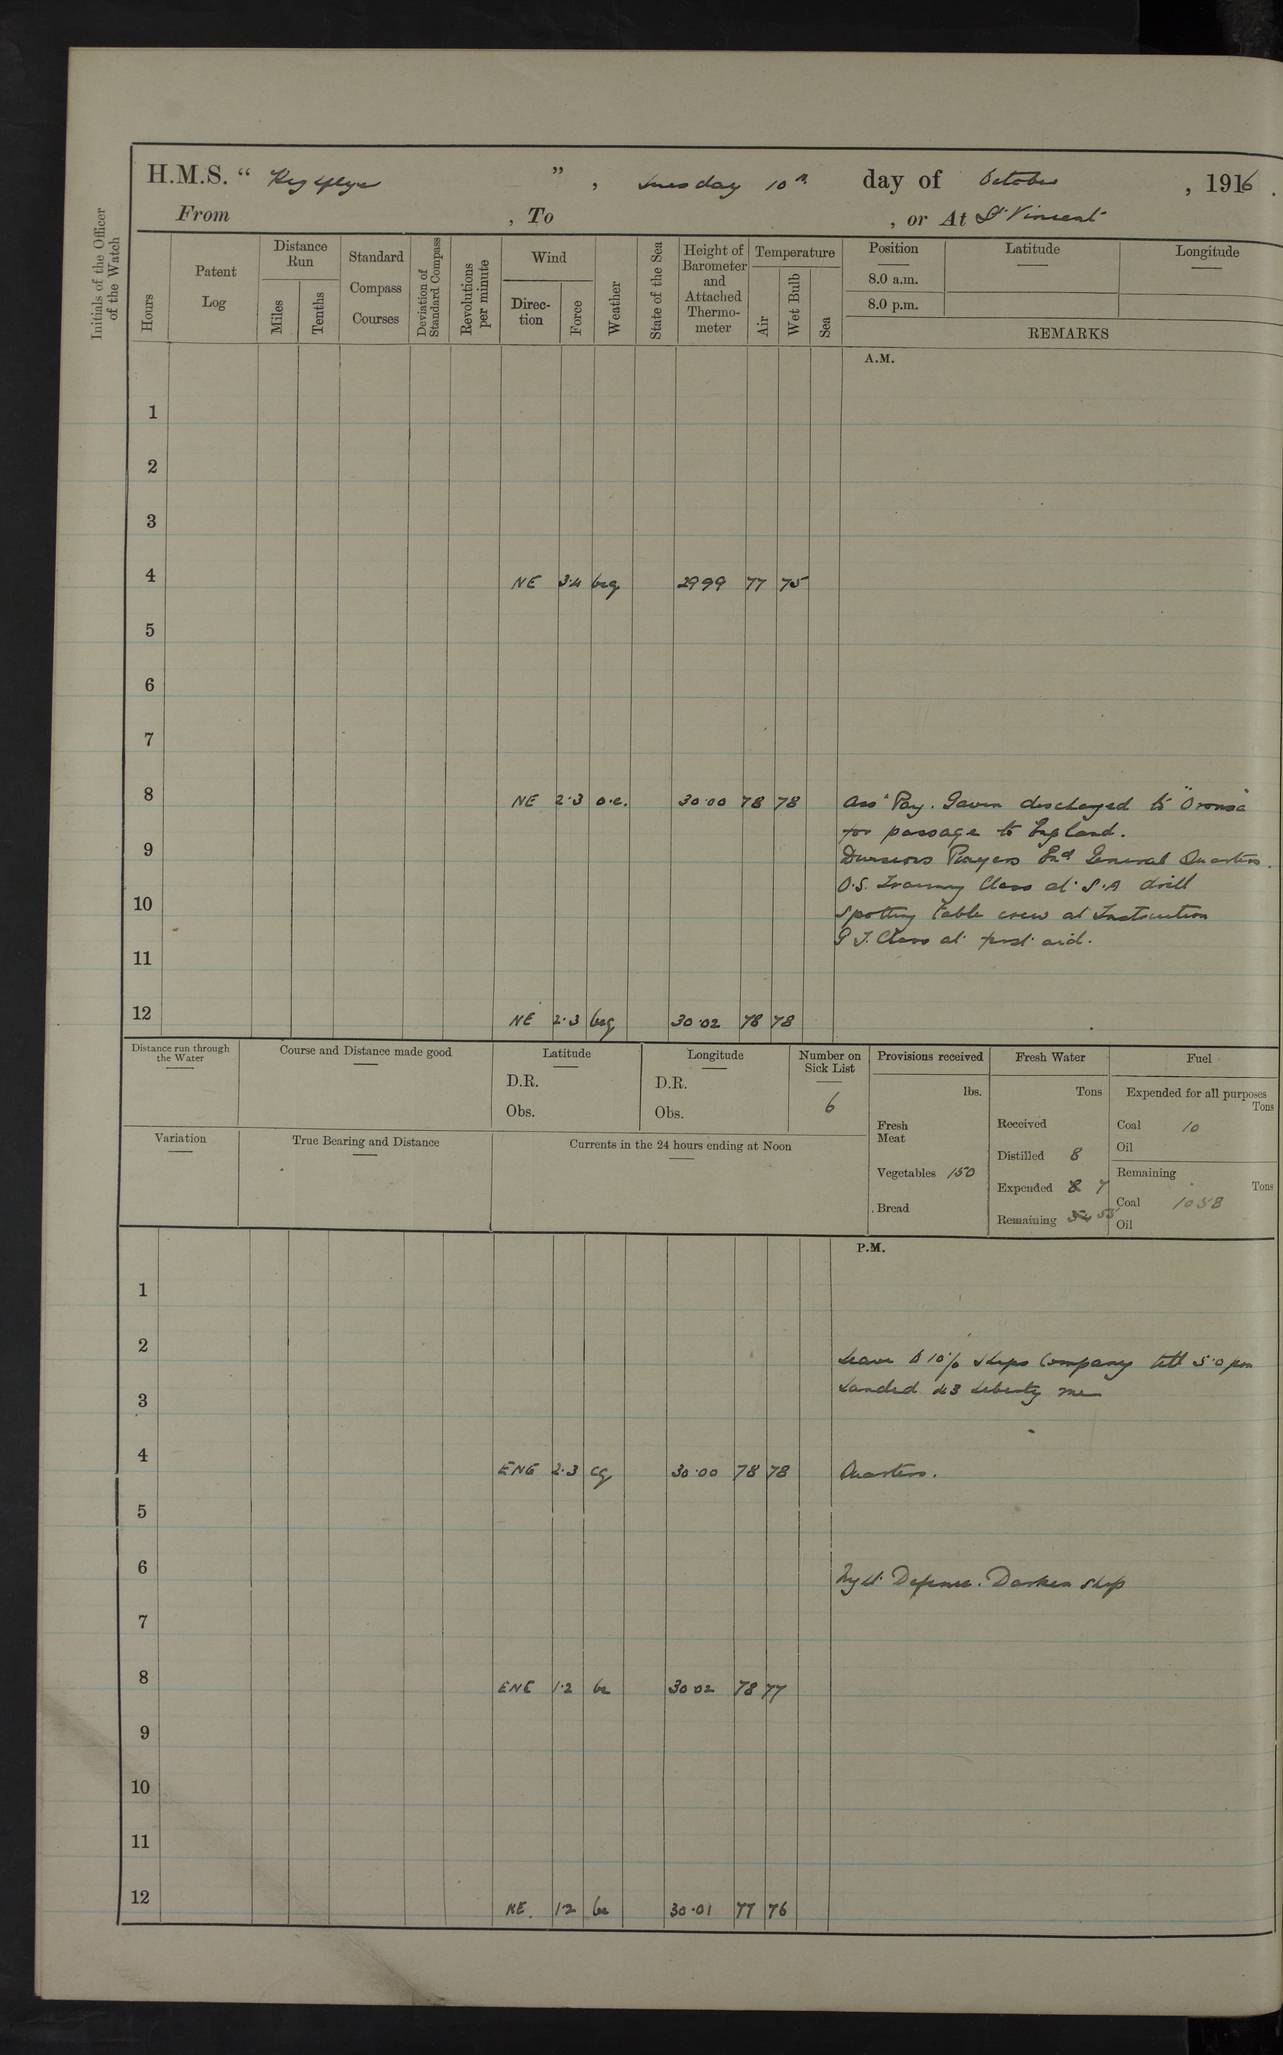 H.M.S. " Highflyer " , Tuesday 10th day of October , 1916 .
From , To , or At St Vincent
Initials of the Officer of the Watch
Hours
Patent Log
Distance Run
Miles
Tenths
Standard Compass Courses
Deviation of Standard Compass
Revolutions per minute
Wind
Direc-tion
Force
Weather
State of the Sea
Height of Barometer and Attached Thermo-meter
Temperature
Air
Wet Bulb
Sea
Position
Latitude
Longitude
8.0 a.m.
8.0 p.m.
REMARKS
A.M.
1
2
3
4 NE 3.4 bcg 29 99 77 75
5
6
7
8 NE 2.3 o.c. 30.00 78 78 Asst Pay. Gavin discharged to "Oronsa"
for passage to England.
9 Divisions Prayers & General Quarters.
O.S. Training Class at S.A drill
10 Spotting table crew at Instruction
P T. Class at first aid.
11
12 NE 2.3 bcg 30.02 78 78
Distance run through the Water
Course and Distance made good
Latitude
D.R.
Obs.
Longitude
D.R.
Obs.
Number on Sick List
6
Variation
True Bearing and Distance
Currents in the 24 hours ending at Noon
Provisions received
lbs.
Fresh Meat
Vegetables 150
Bread
Fresh Water
Tons
Received
Distilled 8
Expended 8 7
Remaining 54 55
Fuel
Expended for all purposes
Tons
Coal 10
Oil
Remaining
Tons
Coal 1058
Oil
P.M.
1
2 Leave to 10% Ships Company till 5.0 pm
3 Landed 43 Liberty men
4 ENE 2.3 cg 30.00 78 78 Quarters.
5
6 Night Defence. Darken Ship
7
8 ENE 1.2 bc 30 02 78 77
9
10
11
12 NE. 1.2 bc 30.01 77 76